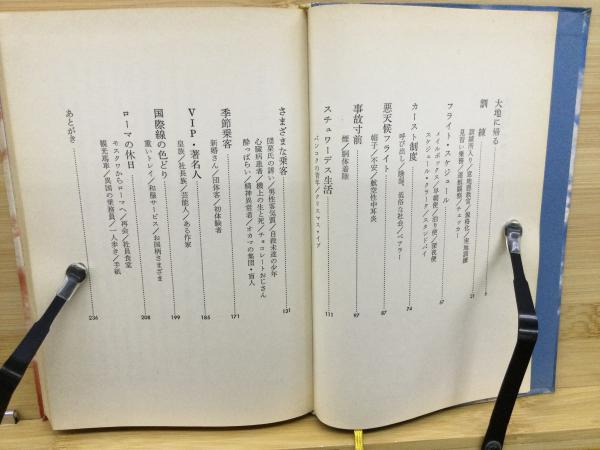 大地に帰る
9
訓練
訓練所入り／意地悪教官／規格化／実地訓練
見習い乗務／運航観察／チェッカー
21
フライト・スケジュール
メイルボックス／早朝便／泊り便／深夜便
スケジュール・クラーク／スタンドバイ
47
カースト制度
呼び出し／陰湿、低俗な社会／ペアラー
74
悪天候フライト
帽子／不安／航空性中耳炎
87
事故寸前
煙／胴体着陸
97
スチュワーデス生活
バンコクの青年／クリスマス・イブ
111
さまざまな乗客
団装氏の誘い／男性客気質／自殺未遂の少年
心臓病患者／機上の生と死／チョコレートおじさん
酔っぱらい／精神異常者／オカマの集団・盲人
131
季節乗客
新婚さん／団体客／初体験者
171
VIP・著名人
皇族／社長族／芸能人／ある作家
185
国際線の色どり
重いトレイ／和服サービス／お国柄さまざま
199
ローマの休日
モスクワからローマへ／再会／社員食堂
観光馬車／異国の乗務員／一人歩き／手紙
208
あとがき
236